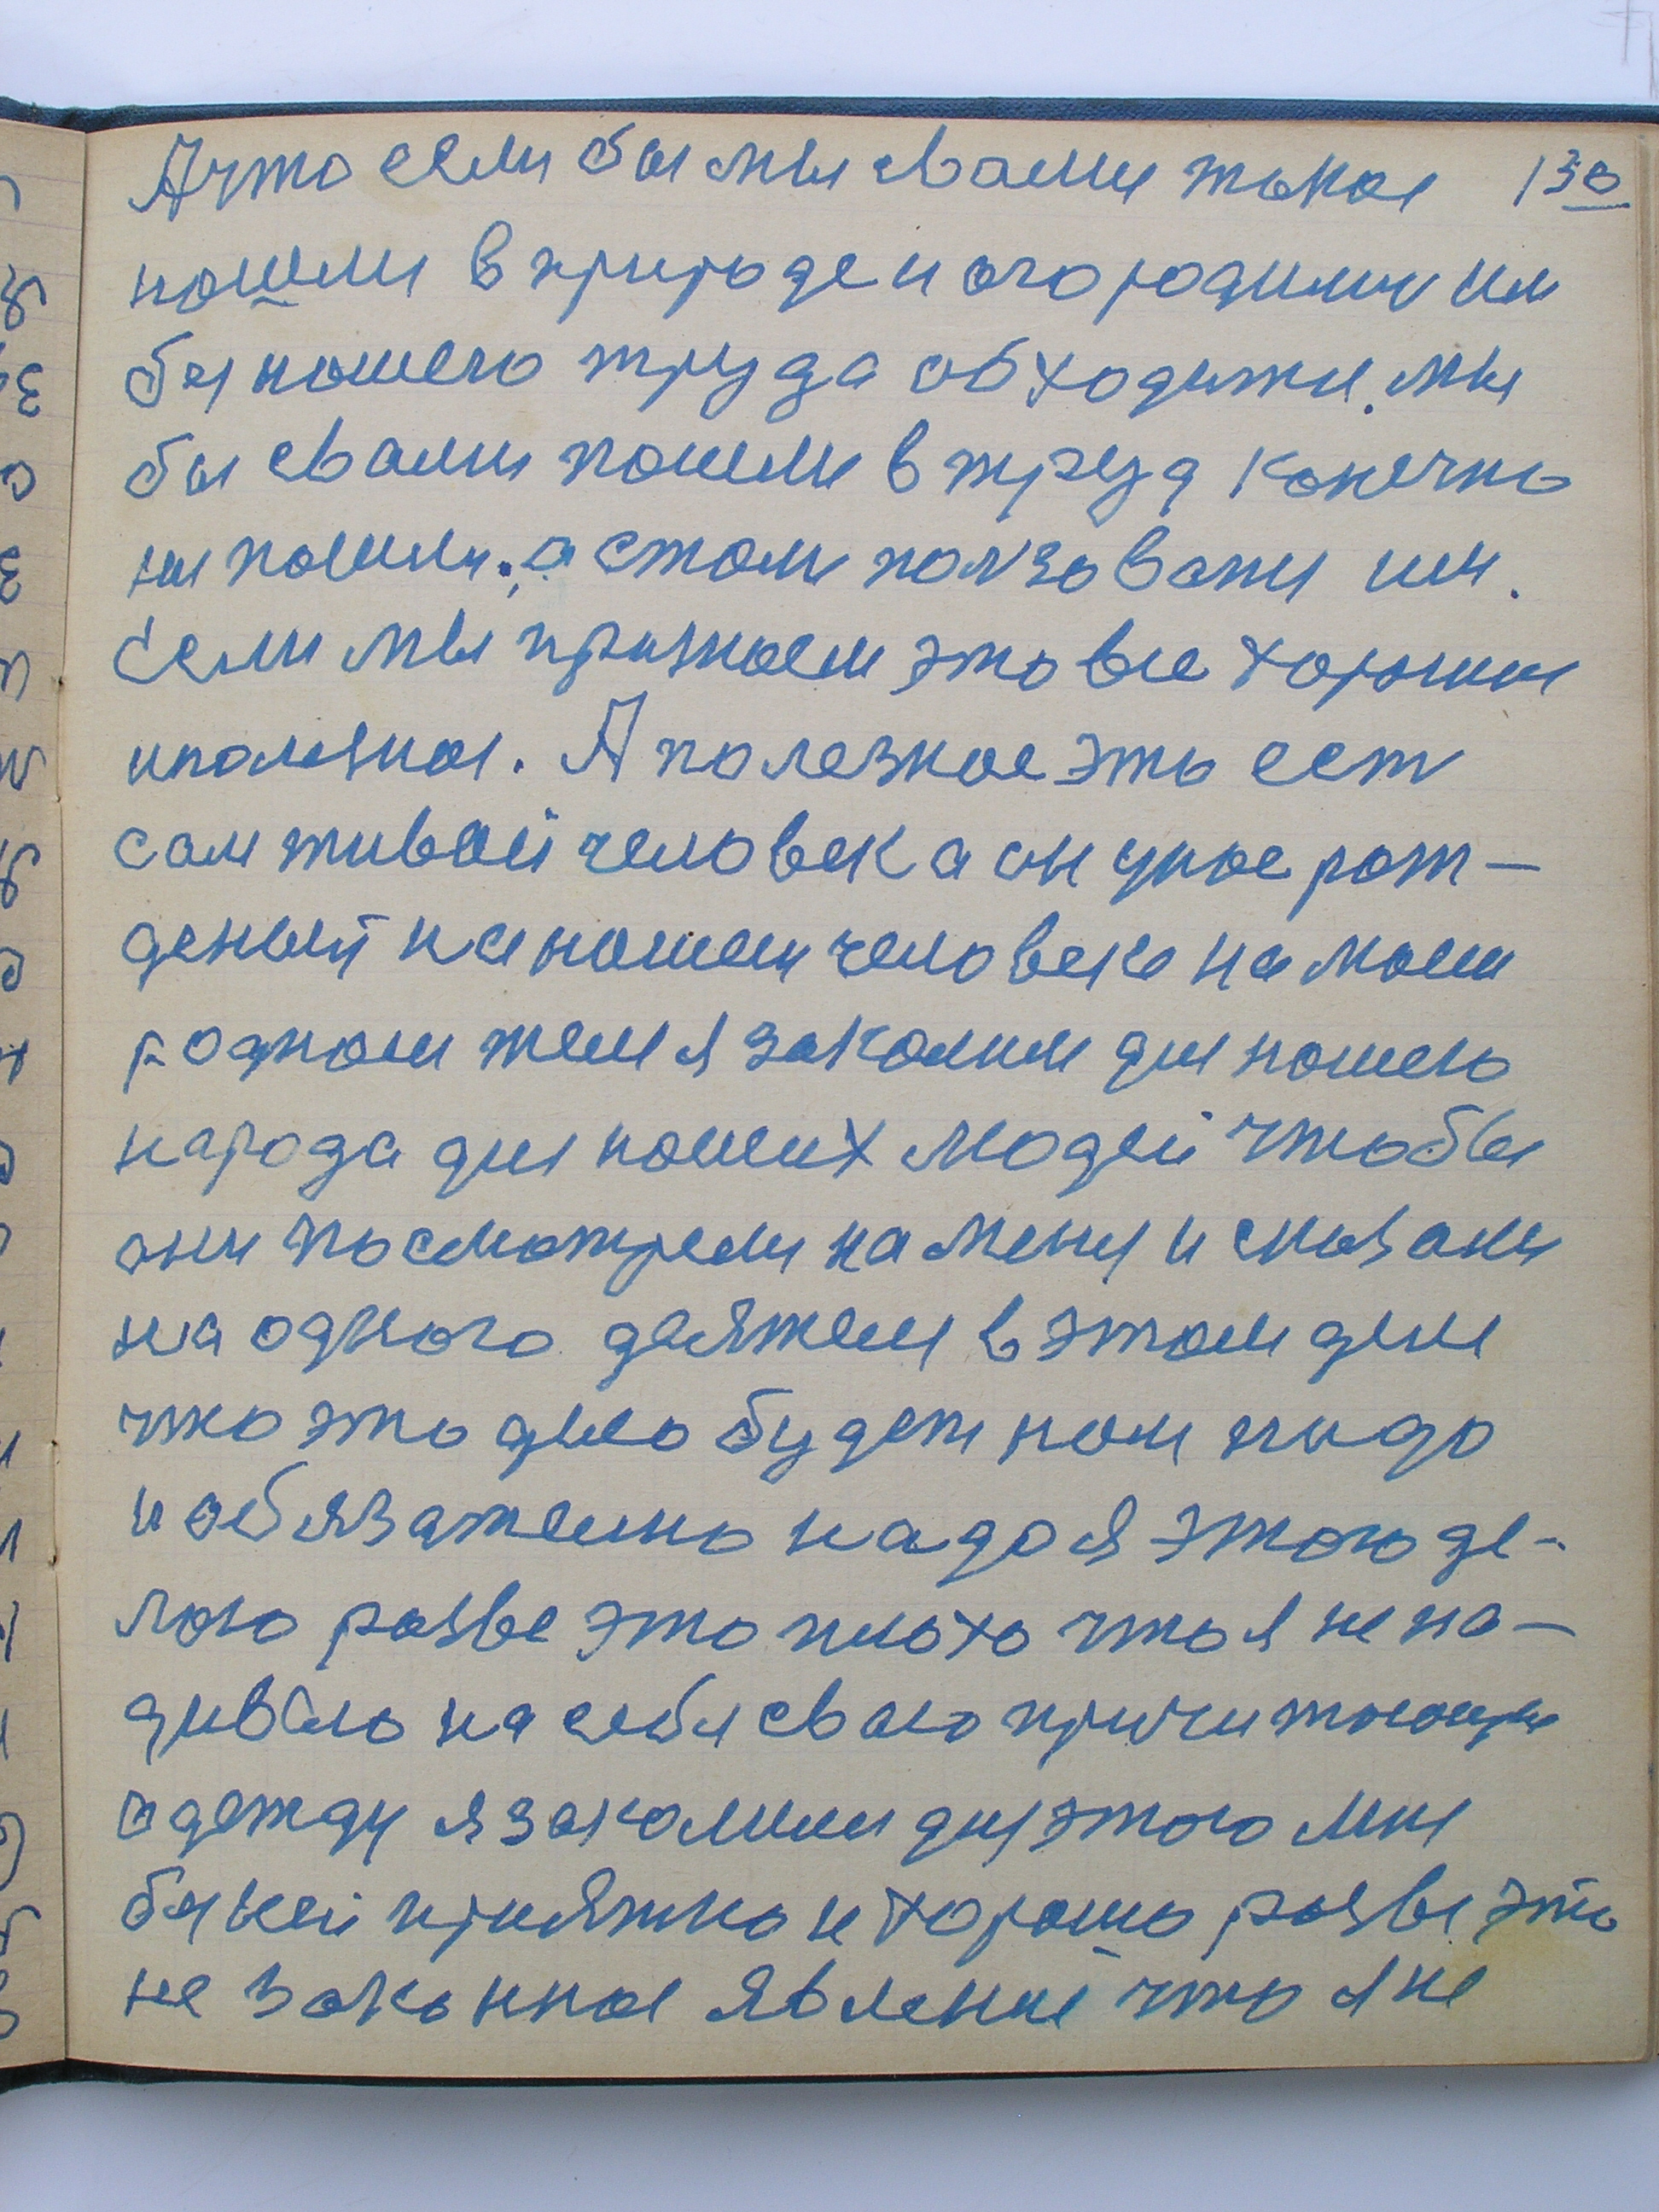 А что если бы мы свами такое 138
нашли в природе и огородили им
без нашего труда обходитя. мы
бы свами пошли в труд конечно
ни пошли. а стали ползоватя им.
Если мы признаем это все хорошие
и полезное. А полезное это ест
сам живой человек а он уное рож–
деный на нашем человеке на моем
родном теле я закалили для нашего
народа для наших людей чтобы
они посмотрели на меня и сказали
на одного деятеля в этом деле
что это дело будет нам надо
и обязателно надо я этого де-
лаю разве это плохо что я не на–
диваю на себя сваю причитающая
одежду я закалили для этого мне
в ней приятно и хорошо разве это
не законное явление что я не